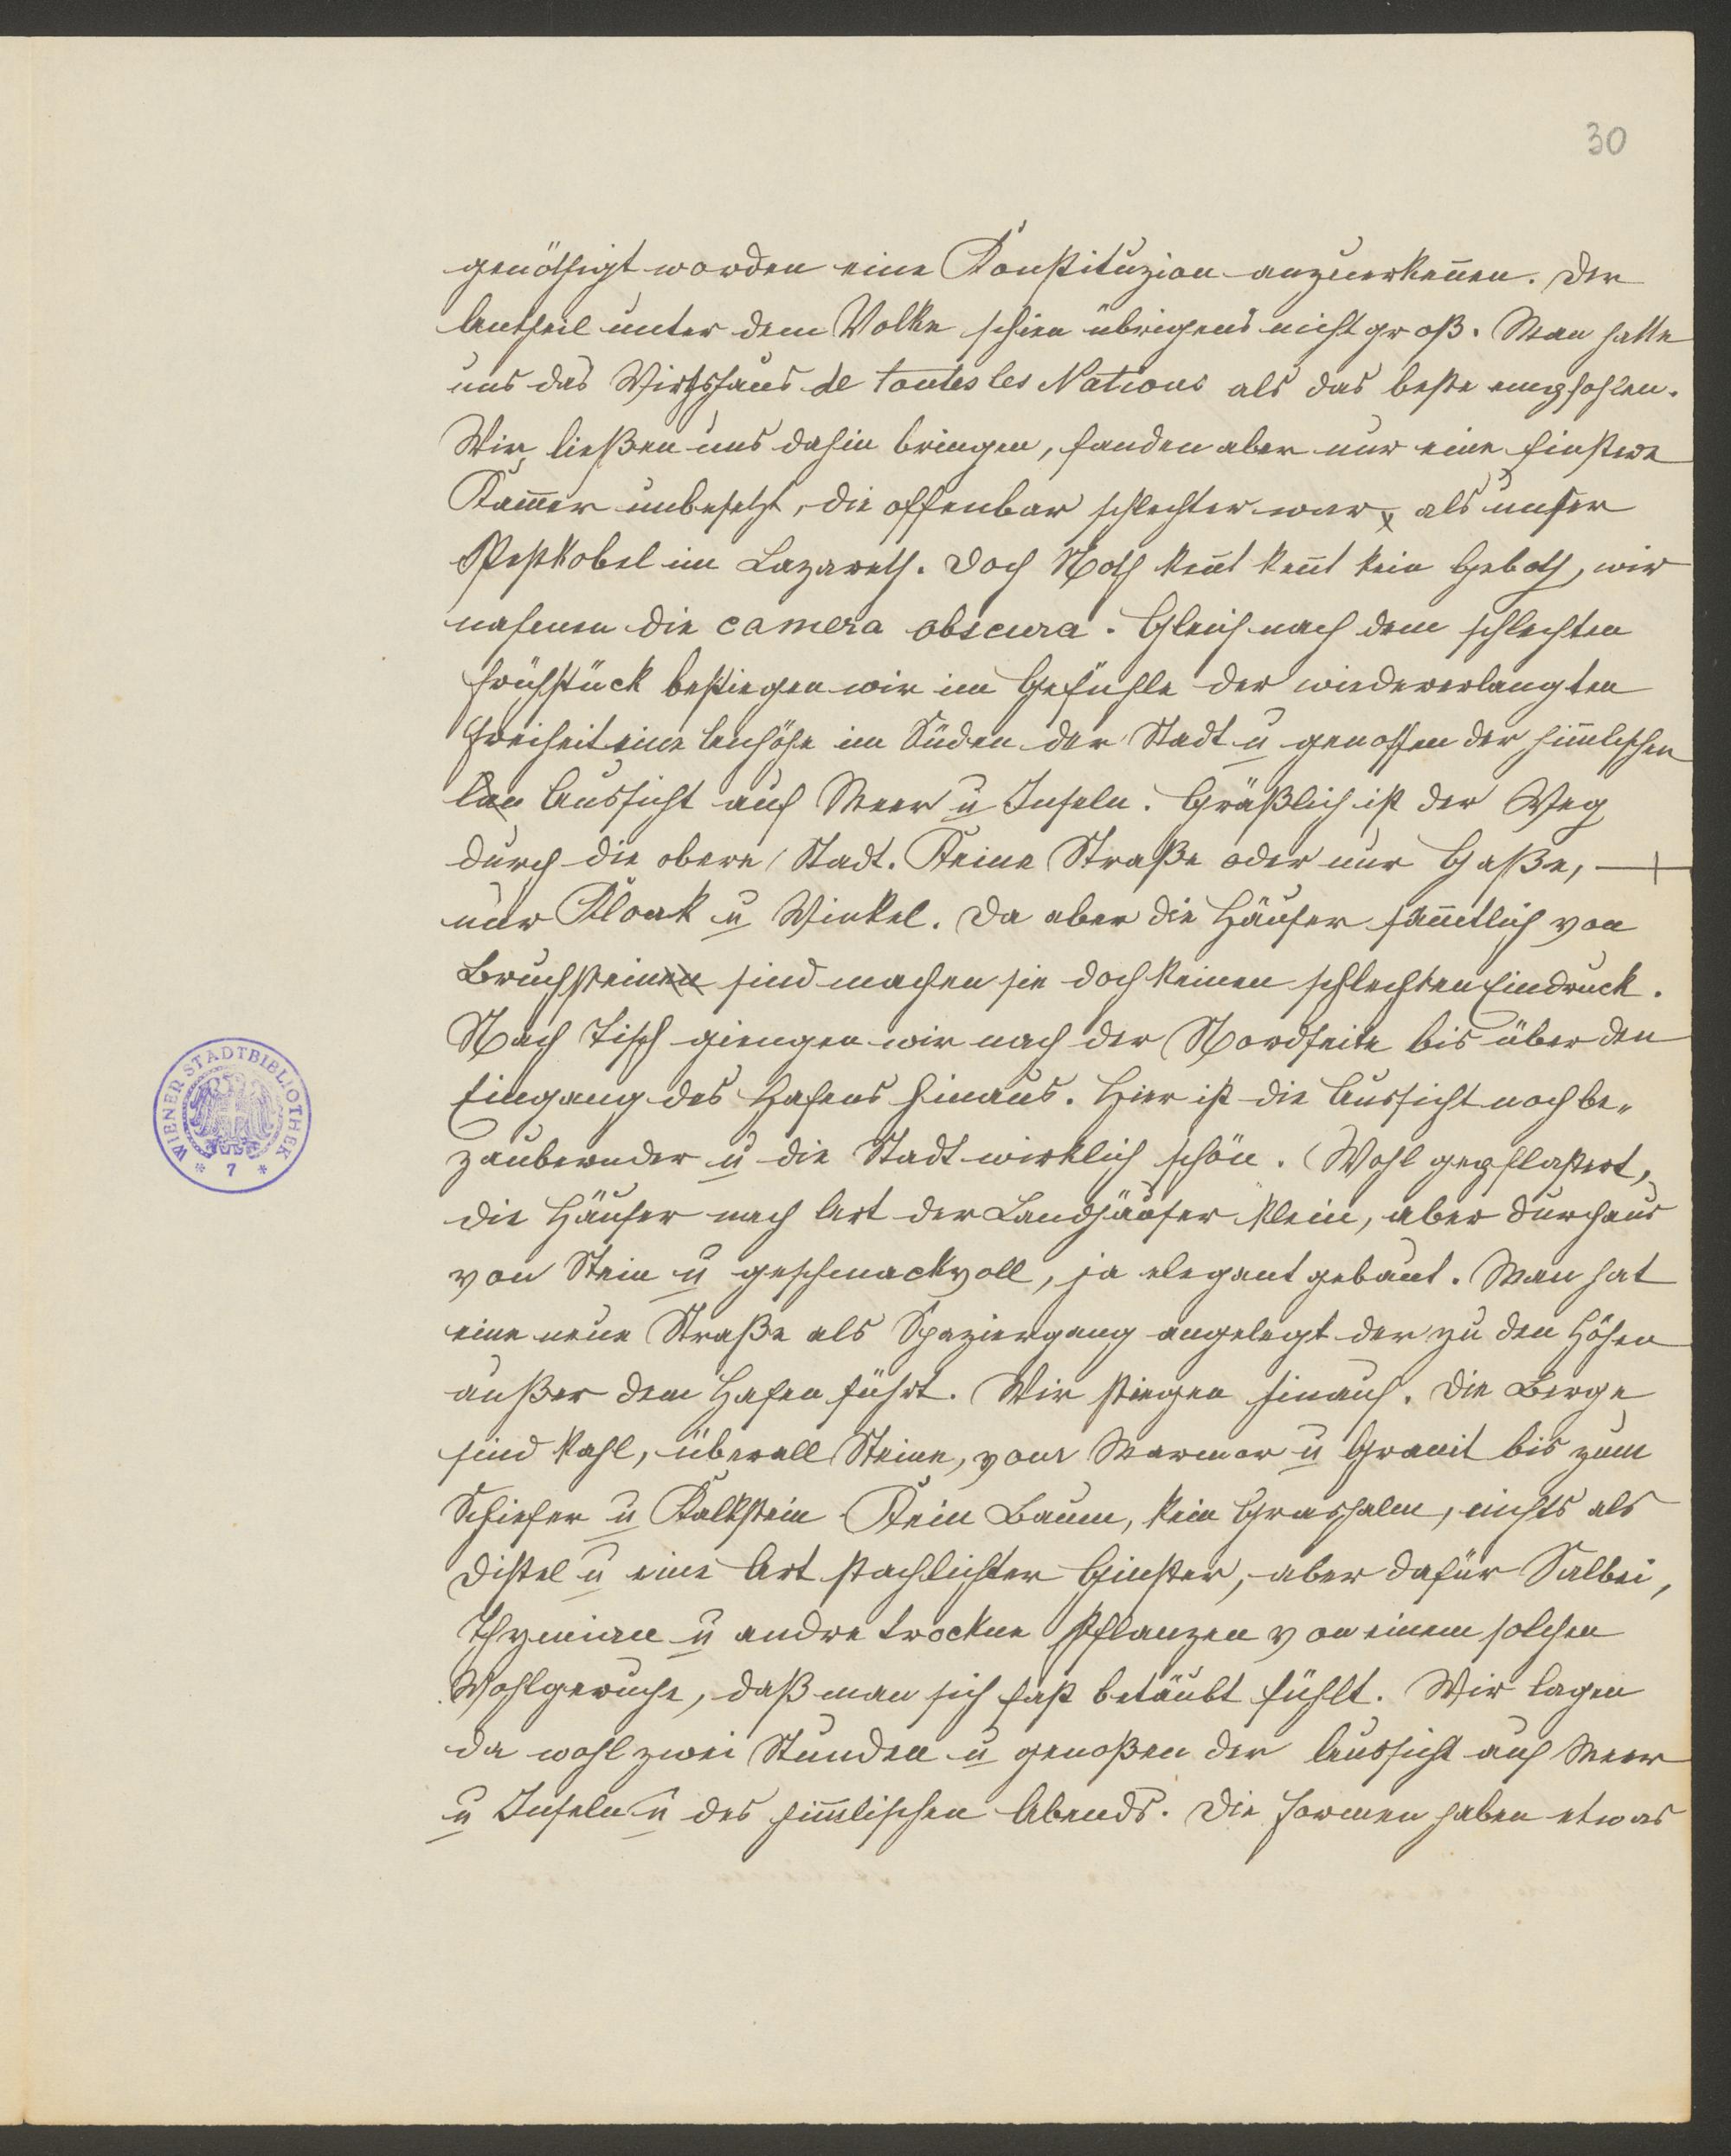 30
genöthigt worden eine Konstituzion anzuerkeñen. Der
Antheil unter dem Volke schien übrigens nicht groß. Man hatte
uns das Wirthshaus de toutes les Nations als das beste empfohlen.
Wir ließen uns dahin bringen, fanden aber nur eine finstere
Kam̃er unbesetzt, die offenbar schlechter war, als unser
Pestkobel im Lazareth. Doch Noth keñt keñt kein Geboth, wir
nahmen die camera obscura. Gleich nach dem schlechten
Frühstück bestiegen wir im Gefühle der wiedererlangten
Freiheit eine Anhöhe im Süden der Stadt u genossen der him̃lischen
Aussicht auf Meer u Inseln. Gräßlich ist der Weg
durch die obere Stadt. Keine Straße oder nur Gaße,
nur Kloak u Winkel. Da aber die Häuser sam̃tlich von
Bruchsteinen sind machen sie doch keinen schlechten Eindruck.
Nach Tisch giengen wir nach der Nordseite bis über den
Eingang des Hafens hinaus. Hier ist die Aussicht noch be„
zaubernder u die Stadt wirklich schön. Wohl gepflastert,
die Häuser nach Art der Landhäuser klein, aber durchaus
von Stein u geschmackvoll, ja elegant gebaut. Man hat
eine neue Straße als Spaziergang angelegt der zu den Höhen
außer dem Hafen führt. Wir stiegen hinauf. Die Berge
sind kahl, überall Steine, vom Marmor u Granit bis zum
Schiefer u Kalkstein Kein Baum, kein Grashalm, nichts als
Distel u eine Art stachlichter Ginster, aber dafür Salbei,
Thymian u andre trockne Pflanzen von einem solchen
Wohlgeruche, daß man sich fast betäubt fühlt. Wir lagen
da wohl zwei Stunden u genoßen der Aussicht auf Meer
u Inseln u des him̃lischen Abends. Die Formen haben etwas
WIENER STADTBIBLIOTHEK
* 7 *